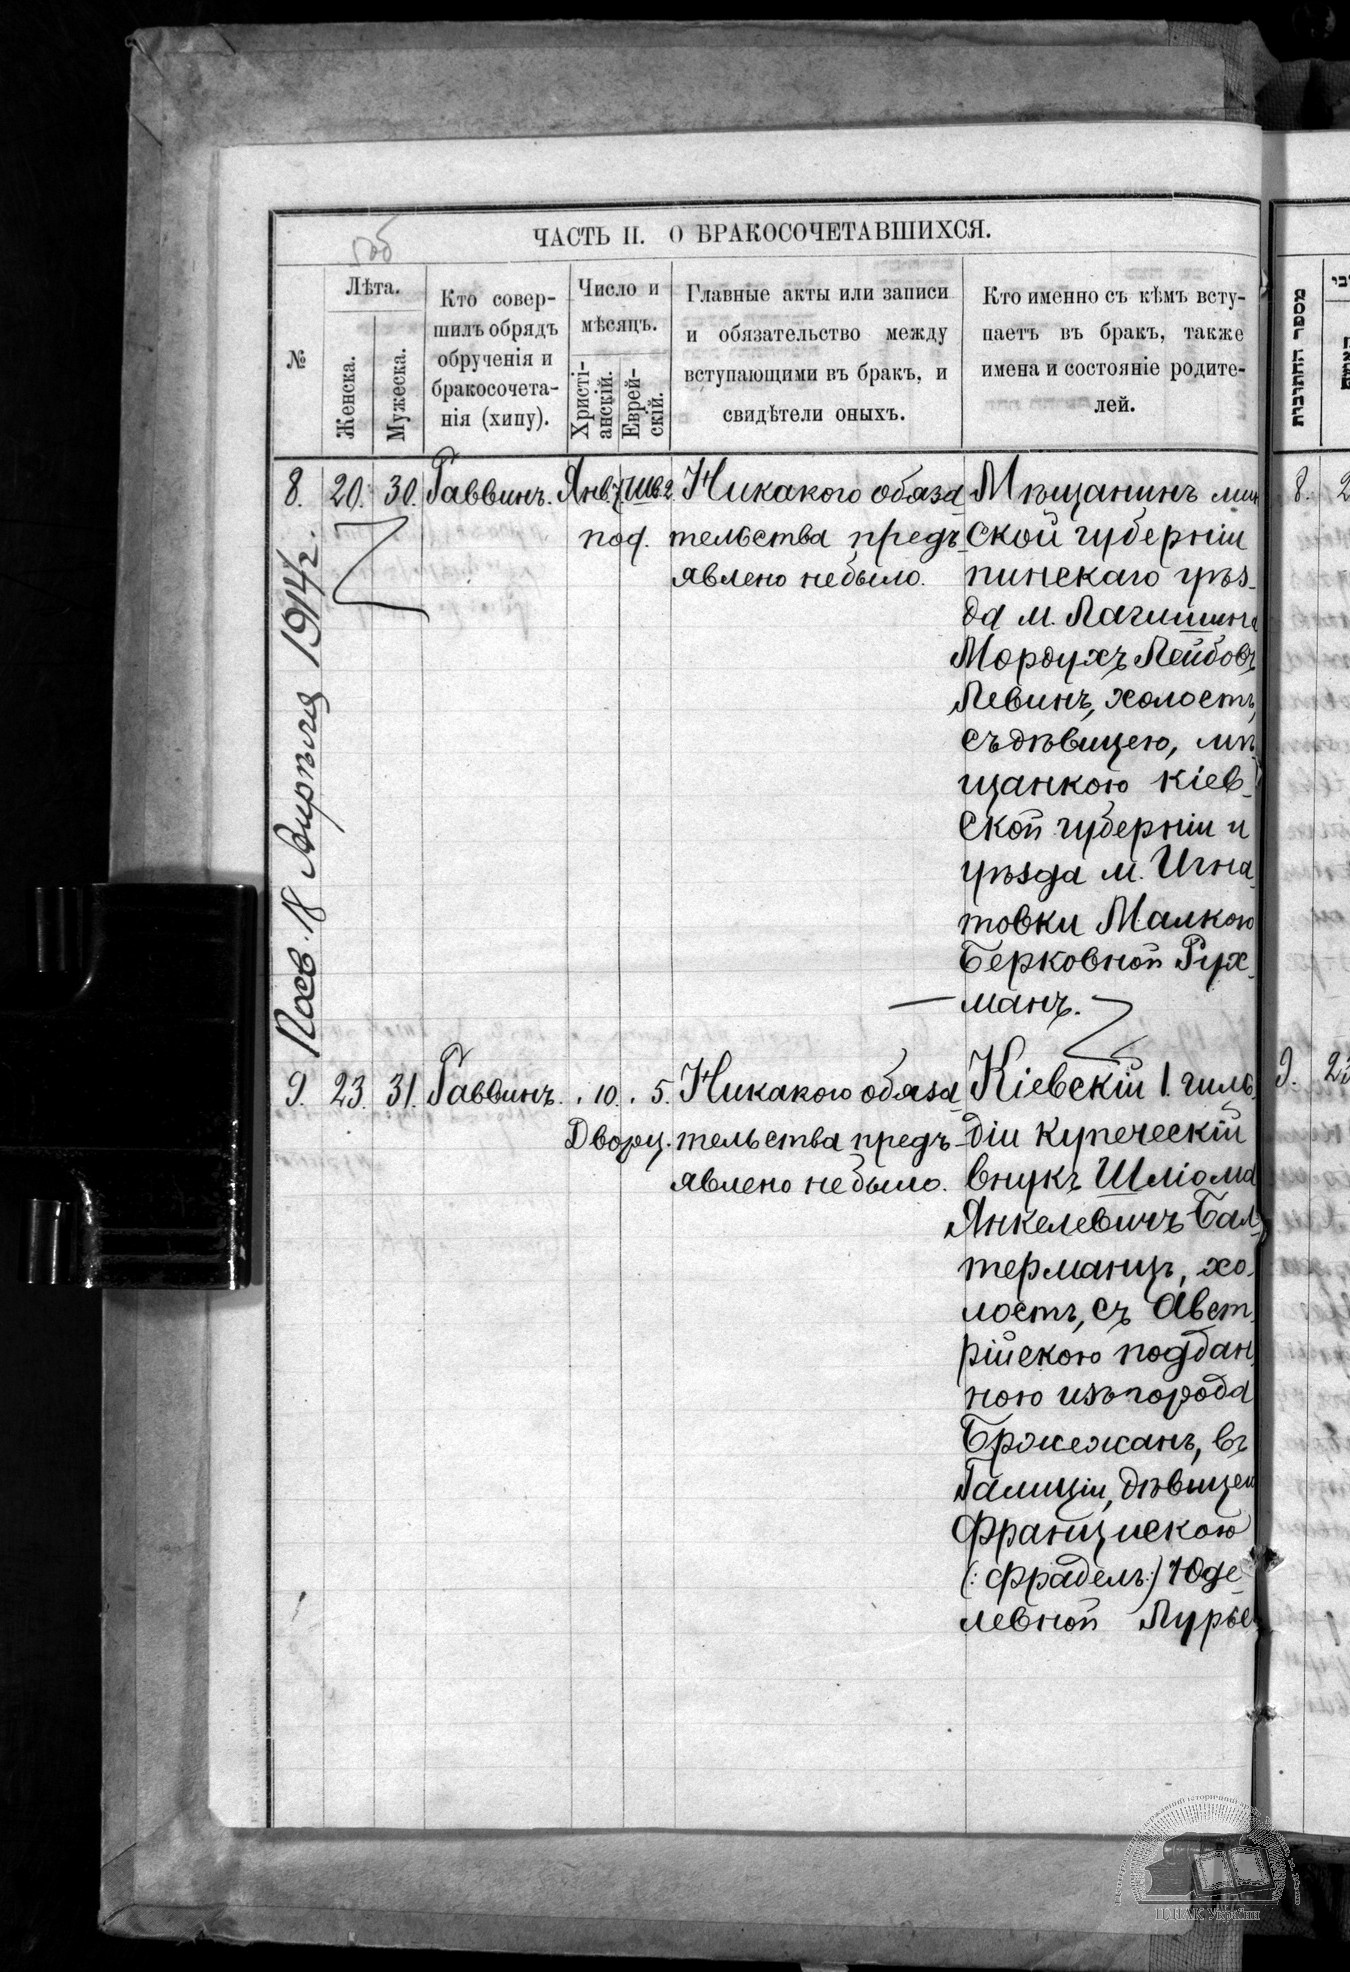 ЧАСТЬ II. О БРАКОСОЧЕТАВШИХСЯ.
№
Лѣта.
Женска.
Мужеска.
Кто совер-
шилъ обрядъ
обрученія и
бракосочета-
нія (хипу).
Число и
мѣсяцъ.
Христі-
анскій.
Еврей-
скій.
Главные акты или записи
и обязательство между
вступающими въ бракъ, и
свидѣтели оныхъ.
Кто именно съ кѣмъ всту-
паетъ въ бракъ, также
имена и состояніе родите-
лей.
מספר החתונות
8. 20. 30. Раввинъ. Янв. 7. Шв. 2.
под.
Никакого обяза-
тельства предъ-
явлено не было.
Мѣщанинъ мин
ской губерніи
пинскаго уѣз-
да м. Лагишина
Мордухъ Лейбовъ
Левинъ, холостъ,
съ дѣвицею, мѣ
щанкою кіев-
ской губерніи и
уѣзда м. Игна-
товки Малкою
Берковной Рух-
манъ.
18 Апрѣля 1914 г.
9. 23. 31. Раввинъ. . 10. . 5.
Дворц.
Никакого обяза-
тельства предъ-
явлено не было.
Кіевскій 1. гиль
діи купеческій
внукъ Шліома
Янкелевичъ Бал-
терманцъ, хо-
лостъ, съ Авст-
рійскою поддан
ною изъ города
Бржежанъ, въ
Галиціи, дѣвицею
Франциcкою
(: Фрадель:) Юде-
левной Лурье
8. 2
9. 23
ЦДІАК України